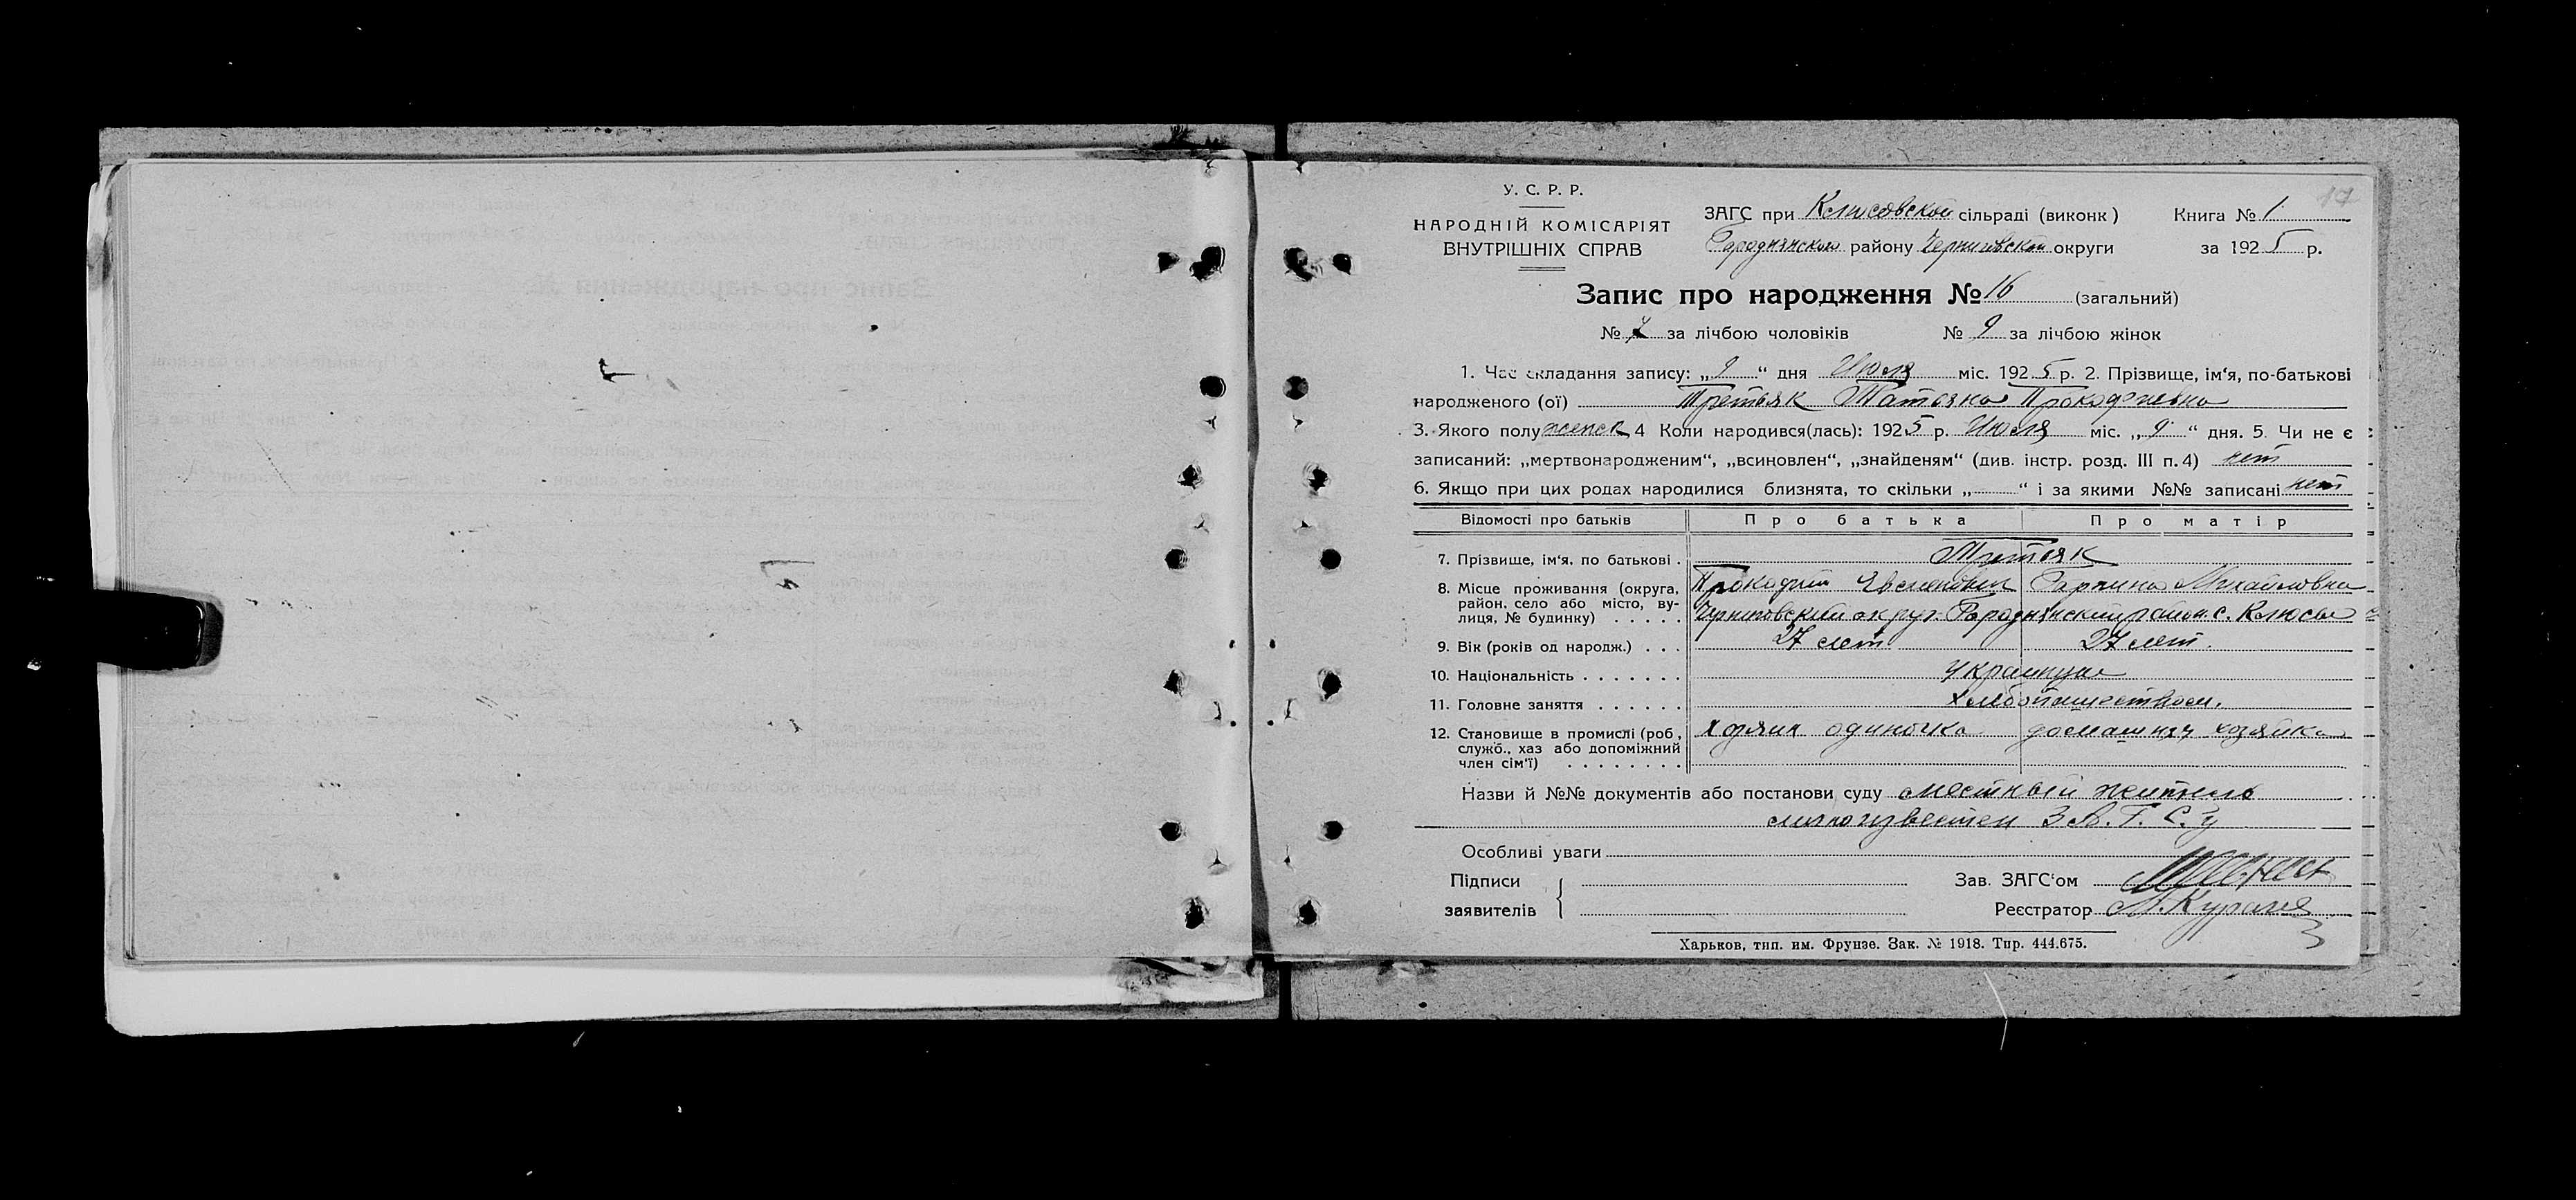 17
У. С. Р. Р.
НАРОДНІЙ КОМІСАРІЯТ
ВНУТРІШНІХ СПРАВ
ЗАГС при Клюсовской сільраді (виконк) Книга № 1
Городнянского району Черниговской округи за 1925 р.
Запис про народження № 16 (загальний)
№ 7 за лічбою чоловіків № 9 за лічбою жінок
1. Час складання запису: „9“ дня Июля міс. 1925 р. 2. Прізвище, ім‘я, по-батькові
народженого (ої) Третьяк Татьяна Прокофиевна
3. Якого полу женск 4 Коли народився(лась): 1925 р. Июля міс. „9“ дня. 5. Чи не є
записаний: „мертвонародженим“, „всиновлен“, „знайденям“ (див. інстр. розд. III п. 4) нет
6. Якщо при цих родах народилися близнята, то скільки „ “ і за якими №№ записані нет
Відомості про батьків Про батька Про матір
7. Прізвище, ім‘я, по батькові . Третьяк
Прокофий Гарпина Михайловна
8. Місце проживання (округа, район, село або місто, вулиця, № будинку) . . . . . Черниговский округ Городнянский район с. Клюсы
9. Вік (років од народж.) . . . 27 лет 27 лет.
10. Національність . . . . . . . Украинцы
11. Головне заняття . . . . . . Хлебопашеством.
12. Становище в промислі (роб., служб., хаз або допоміжний член сім‘ї) . . . . . . . . Хозяин одиночка домашняя хозяйка
Назви й №№ документів або постанови суду местный житель
лично известен З А. Г. С. у
Особливі уваги
Підписи
заявителів
Зав. ЗАГС‘ом
Реєстратор
Харьков, тип. им. Фрунзе. Зак. № 1918. Тир. 444.675.